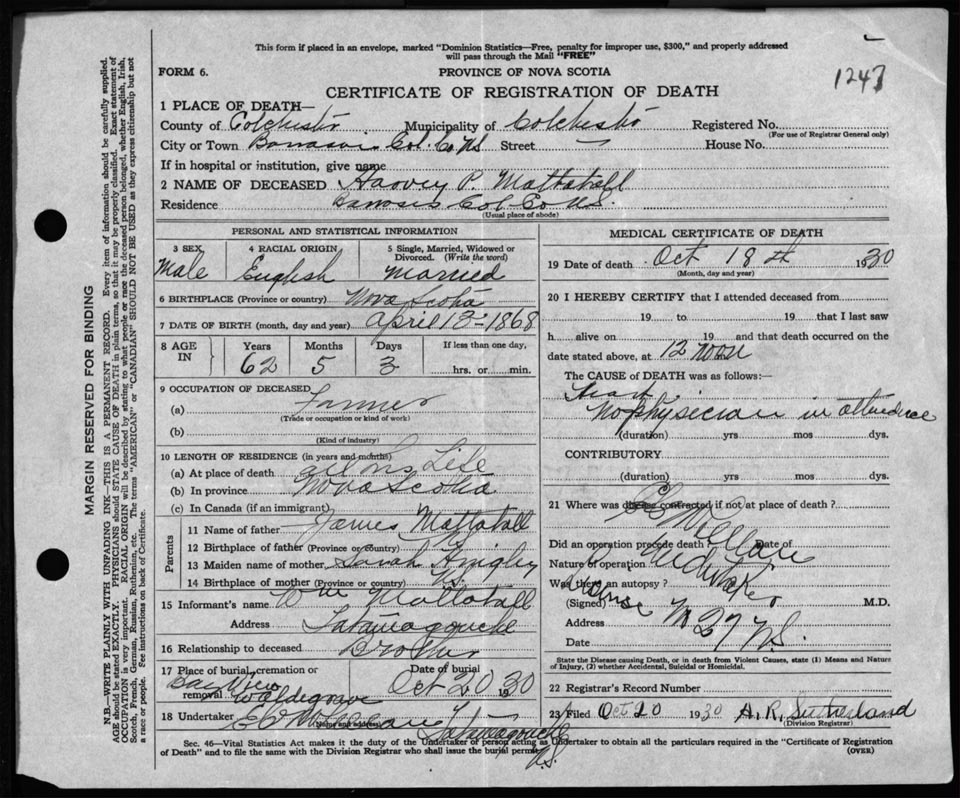 This form if placed in an envelope, marked "Dominion Statistics—Free, penalty for improper use, $300," and properly addressed
will pass through the Mail "FREE"
FORM 6.
PROVINCE OF NOVA SCOTIA
1247
CERTIFICATE OF REGISTRATION OF DEATH
1 PLACE OF DEATH—
County of Colchester Municipality of Colchester Registered No.
(For use of Registrar General only)
City or Town Col. Co NS Street — House No.
If in hospital or institution, give name
2 NAME OF DECEASED Harvey P. Mattatall
Residence Col Co NS.
(Usual place of abode)
PERSONAL AND STATISTICAL INFORMATION
3 SEX 4 RACIAL ORIGIN 5 Single, Married, Widowed or Divorced. (Write the word)
Male English Married
6 BIRTHPLACE (Province or country) Nova Scotia
7 DATE OF BIRTH (month, day and year) April 1868
8 AGE IN Years Months Days If less than one day,
62 5 3 hrs. or min.
9 OCCUPATION OF DECEASED
(a) Farmer
(Trade or occupation or kind of work)
(b)
(Kind of industry)
10 LENGTH OF RESIDENCE (in years and months)
(a) At place of death all his Life
(b) In province Nova Scotia
(c) In Canada (if an immigrant)
Parents
11 Name of father James Mattatall
12 Birthplace of father (Province or country)
13 Maiden name of mother Sarah
14 Birthplace of mother (Province or country) N.S.
15 Informant's name Wm Mattatall
Address Tatamagouche
16 Relationship to deceased Brother
17 Place of burial, cremation or removal Date of burial
Bay View Waldegrave Oct 20 1930
18 Undertaker
(Name and address)
Tatamagouche
N.S.
MEDICAL CERTIFICATE OF DEATH
19 Date of death Oct 18th 1930
(Month, day and year)
20 I HEREBY CERTIFY that I attended deceased from
19 to 19 that I last saw
h alive on 19 and that death occurred on the
date stated above, at 12 noon
The CAUSE of DEATH was as follows:
Heart
No physician in attendance
(duration) yrs mos dys.
CONTRIBUTORY
(duration) yrs mos dys.
21 Where was disease contracted if not at place of death ?
Did an operation precede death ? Date of
Nature of operation Undertaker
Was there an autopsy ?
(Signed) M.D.
Address
Date
State the Disease causing Death, or in death from Violent Causes, state (1) Means and Nature
of Injury, (2) whether Accidental, Suicidal or Homicidal.
22 Registrar's Record Number
23 Filed Oct 20 1930 A.R. Sutherland
(Division Registrar)
Sec. 46—Vital Statistics Act makes it the duty of the Undertaker or person acting as Undertaker to obtain all the particulars required in the "Certificate of Registration
of Death" and to file the same with the Division Registrar who shall issue the burial permit.
(OVER)
MARGIN RESERVED FOR BINDING
N.B.—WRITE PLAINLY WITH UNFADING INK—THIS IS A PERMANENT RECORD. Every item of information should be carefully supplied.
AGE should be stated EXACTLY. PHYSICIANS should STATE CAUSE OF DEATH in plain terms, so that it may be properly classified. Exact statement of
OCCUPATION is very important. RACIAL ORIGIN will be described by stating to what people or race the deceased person belonged, whether English, Irish,
Scotch, French, German, Russian, Ruthenian, etc. The terms "AMERICAN" or "CANADIAN" SHOULD NOT BE USED as they express citizenship but not
a race or people. See instructions on back of Certificate.